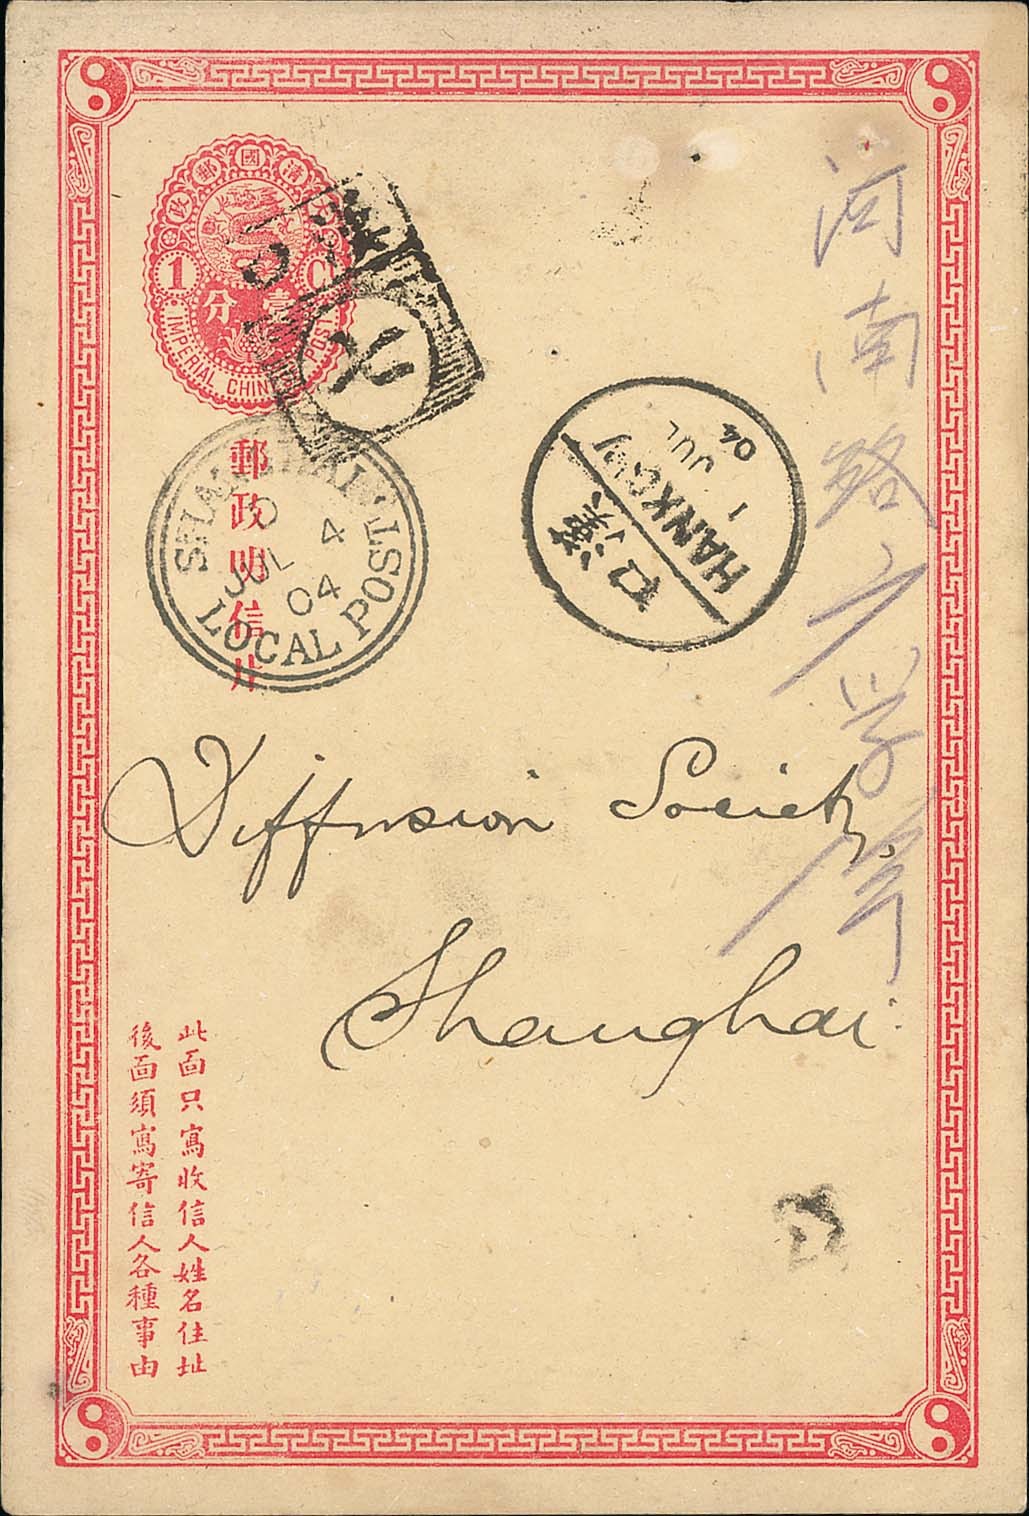 大清國郵政
1 CT
壹分
IMPERIAL CHINESE POST
郵政明信片
SHANGHAI
LOCAL POST
D
JUL 4
04
漢口
HANKOW
1
JUL
04
河南路廣學會
Diffusion Society,
Shanghai.
此面只寫收信人姓名住址
後面須寫寄信人各種事由